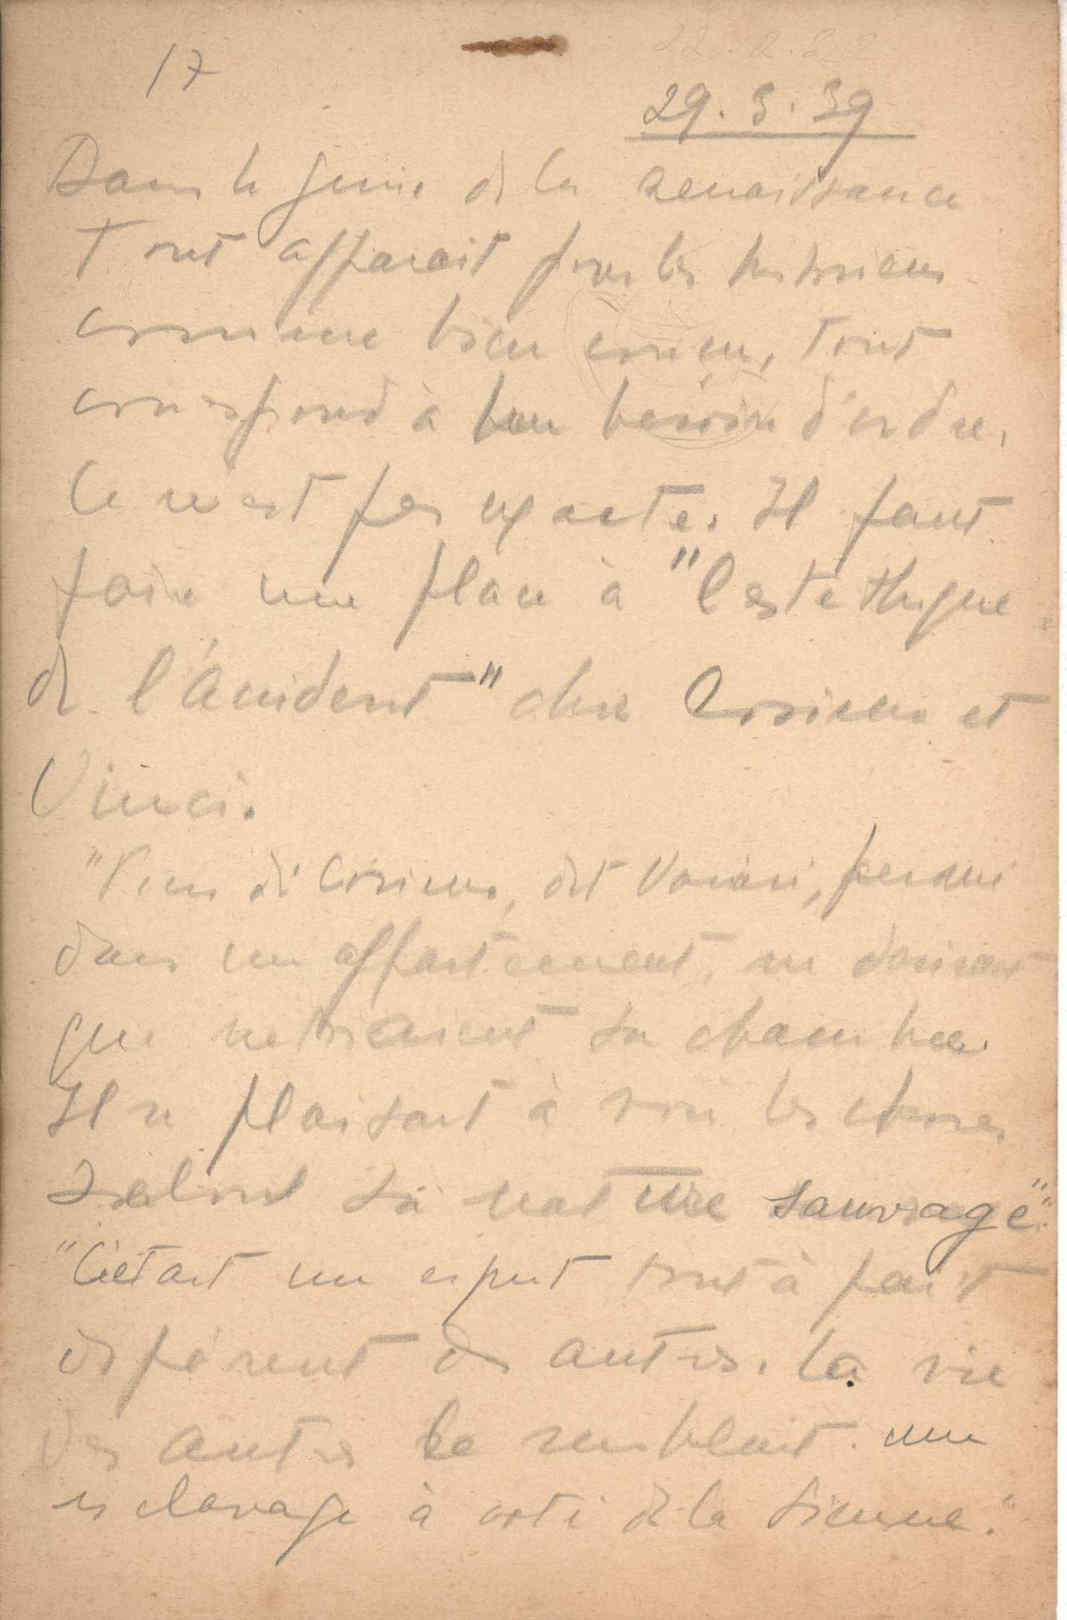 17
29.3.39
Dans le génie de la renaissance
Tout apparait pour les historiens
comme bien connu, tout
correspond à leur besoin d'ordre.
Ce n'est pas exacte. Il faut
faire une place à "l'estethyque
de l'accident" chez Cosimo et
Vinci.
"Piero di Cosimo, dit Vasari,
dans un appartement, ne
que sa chambre.
Il se plaisait à voir les choses
selont sa nature sauvage".
"C'était un esprit tout à fait
diférent des autres. La vie
des autres le semblait un
esclavage à coté de la sienne."